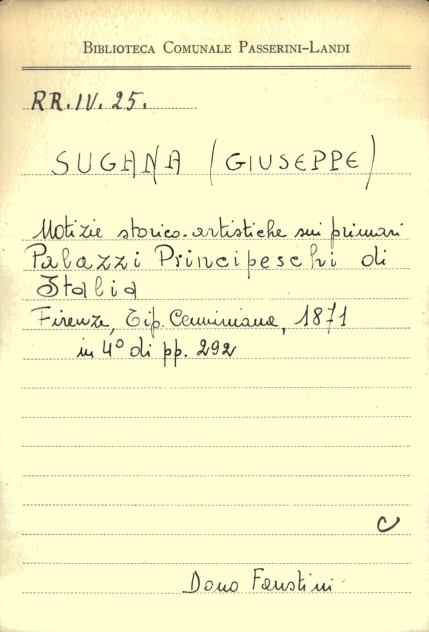 BIBLIOTECA COMUNALE PASSERINI-LANDI
RR.IV.25.
SUGANA (GIUSEPPE)
Notizie storico-artistiche sui primari
Palazzi Principeschi di
Italia
Firenze, Tip. Cenniniana, 1871
in 4° di pp. 292
C
Dono Faustini